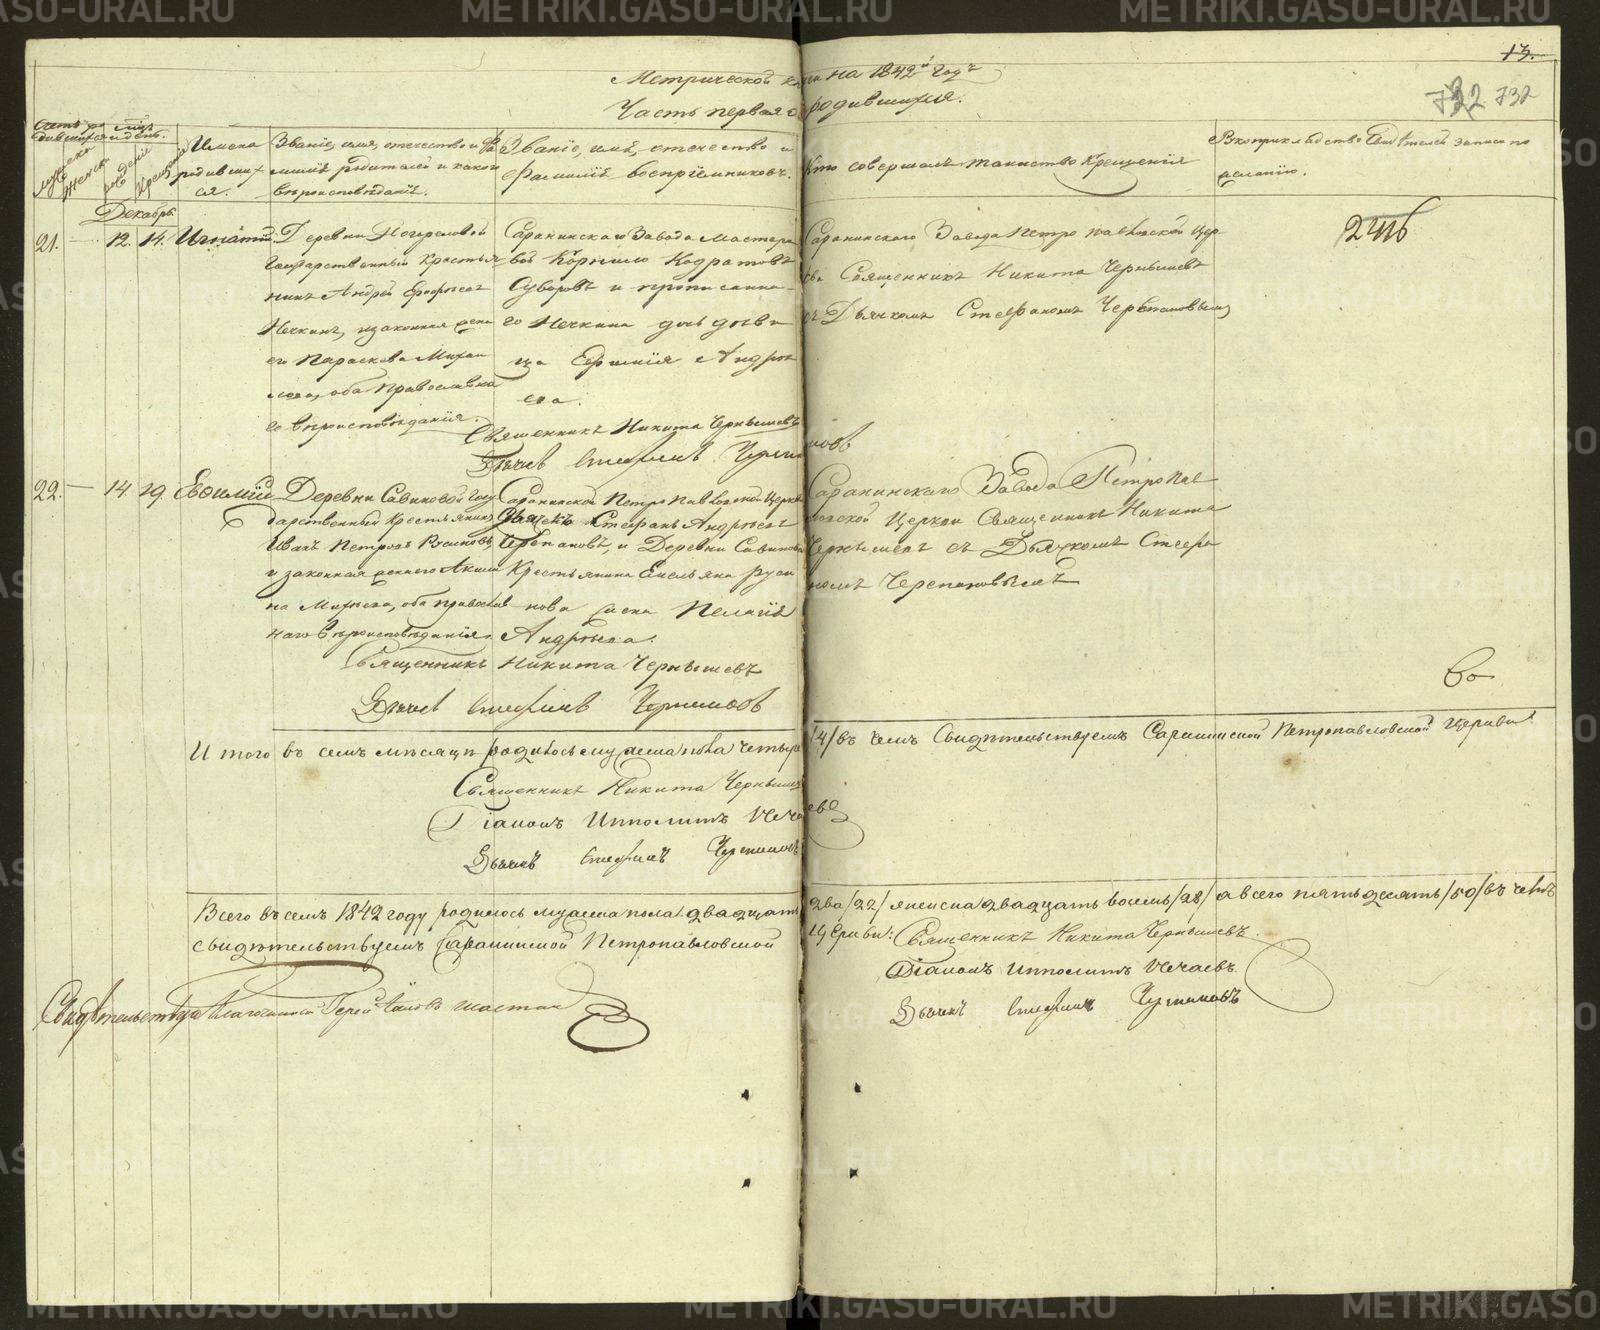 METRIKI.GASO-URAL.RU
13.
732 732
Метрической книги на 1842й Годъ
Часть первая о родившихся.
Имена родившихся.
Званіе, имя, отечество и фамилія родителей и какого вѣроисповѣданія.
Званіе, имя, отечество и фамилія воспріемниковъ.
Кто совершалъ таинство Крещенія
Рукоприкладство Свидѣтелей записи по желанію.
Декабрь
21. — 12. 14. Игнатій
Государственный Крестья-
нинъ Андрей
Нечкинъ, и законная жена
его Параскева Михаи
лова, оба Православна
го вѣроисповѣданія.
Саранинскаго Завода Мастеро
вой Корнило Кодратовъ
Суворовъ и прописанна-
го Нечкина дочь дѣви
ца Ефимія Андрее
ева.
Саранинскаго Завода Петропавловской Цер-
кви Священникъ Никита Чернышевъ
съ Дьячкомъ Стефаномъ Черепановымъ
Священникъ Никита Чернышевъ
Дьячекъ Стефанъ Черепановъ
22. — 14. 19. Евѳимій
Деревни Савиновой Госу
дарственный Крестьянинъ
Иванъ Петровъ Русиновъ,
и законная жена его Акили
на Михѣева, оба православ
наго Вѣроисповѣданія.
Саранинской Петропавловской Церкви
Дьячекъ Стефанъ Андреевъ
Черепановъ, и Деревни Савиновой
Крестьянина Емельяна Руси
нова жена Пелагія
Андреева.
Саранинскаго Завода Петропав
ловской Церкви Священникъ Никита
Чернышевъ съ Дьячкомъ Стефа
номъ Черепановымъ
Священникъ Никита Чернышевъ
Дьячекъ Стефанъ Черепановъ
Итого въ семъ мѣсяцѣ родилось мужеска пола четыре /4/ въ чемъ Свидѣтельствуемъ Саранинской Петропавловской Церкви
Священникъ Никита Чернышевъ
Діаконъ Ипполитъ Нечаевъ
Дьячекъ Стефанъ Черепановъ
Всего въ семъ 1842 году родилось мужеска пола двадцать два /22/ женска двадцать восемь /28/ а всего пятьдесятъ /50/ въ чемъ
свидѣтельствуемъ Саранинской Петропавловской Церкви: Священникъ Никита Чернышевъ.
Діаконъ Ипполитъ Нечаевъ
Дьячекъ Стефанъ Черепановъ